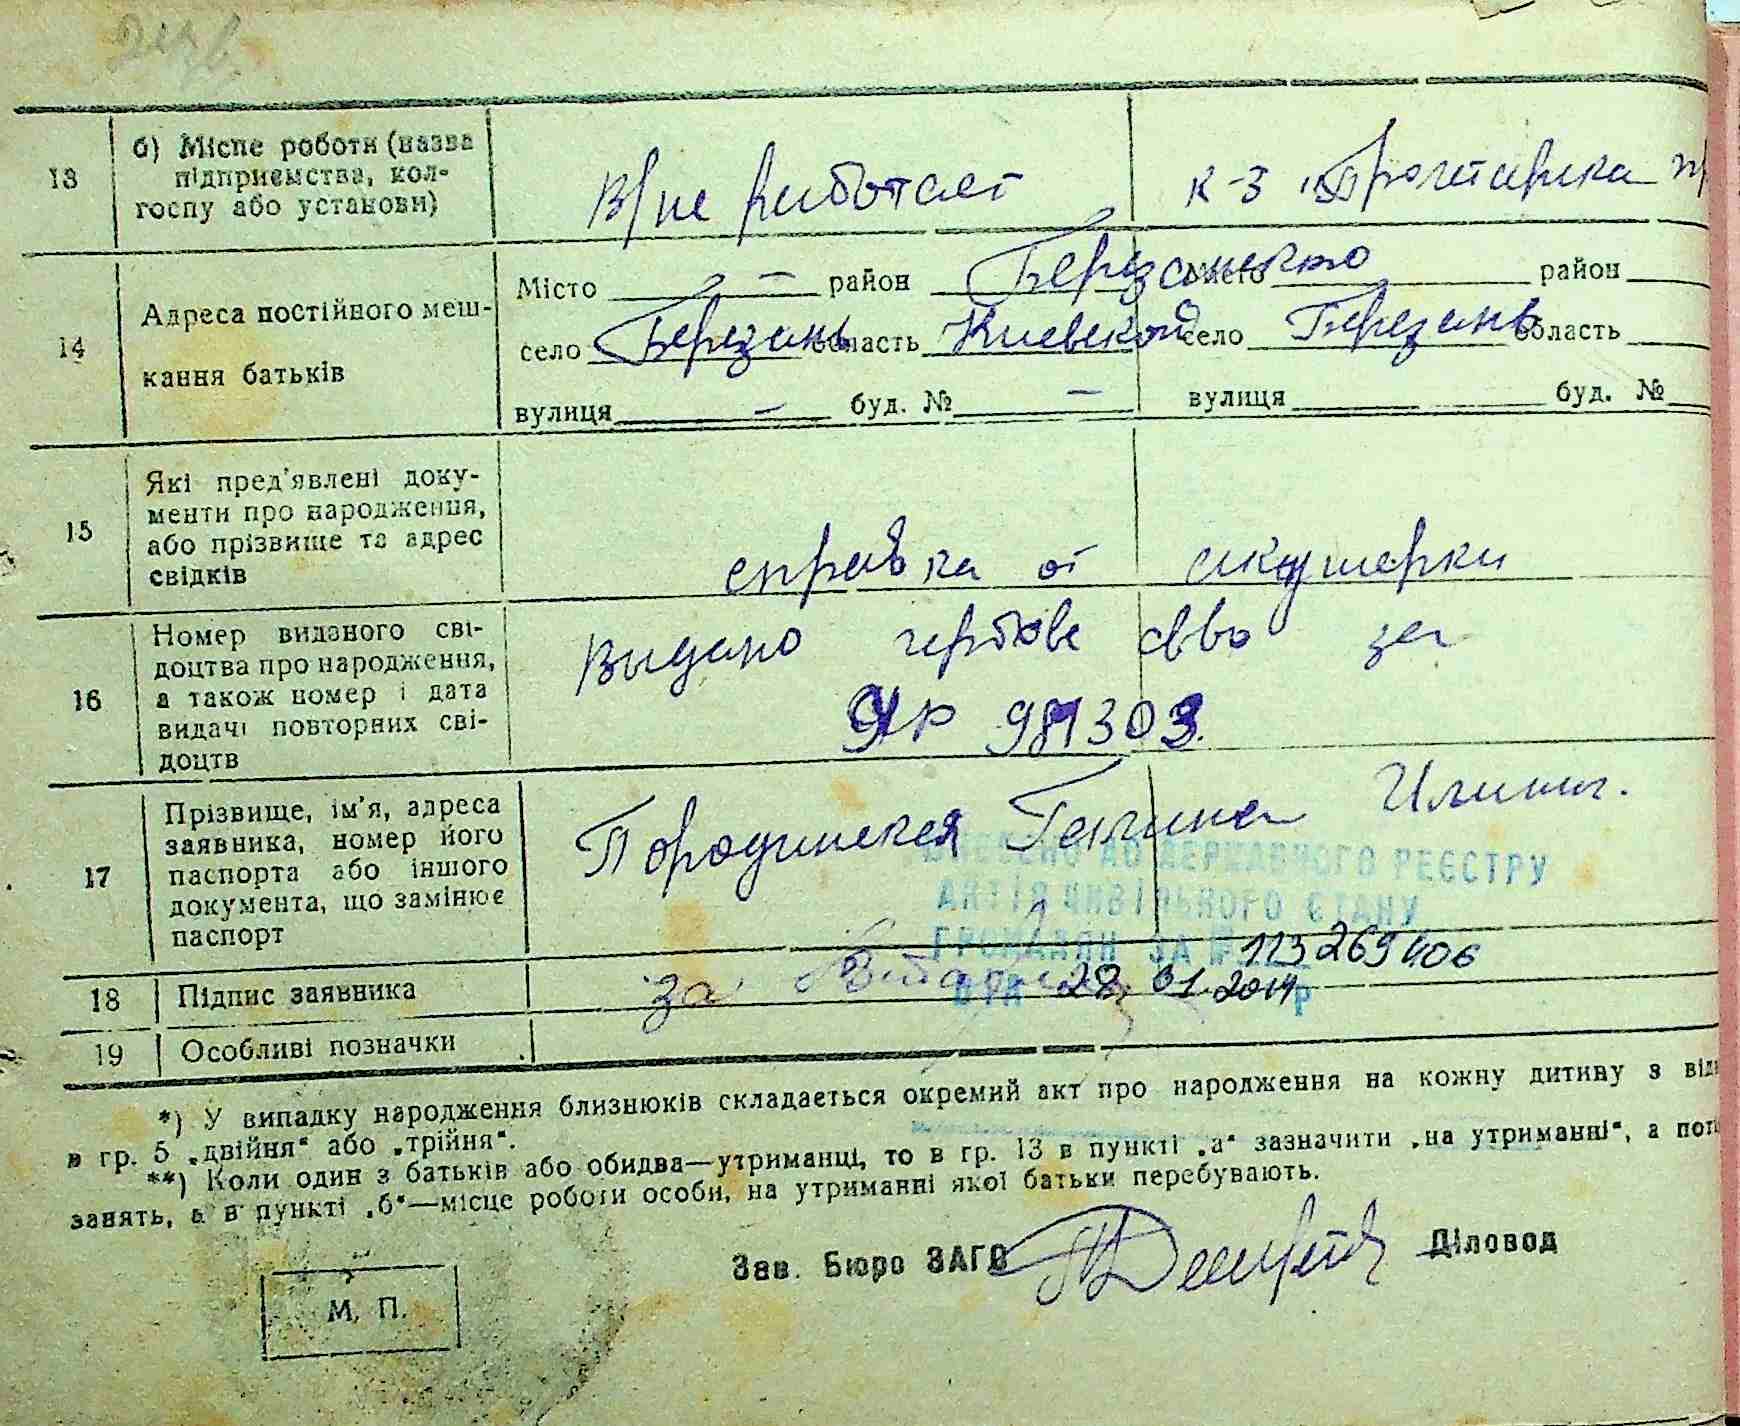 13
б) Місце роботи (назва
підприємства, кол-
госпу або установи)
не работает
к-з
14
Адреса постійного меш-
кання батьків
Місто — район Березанського
село Березань область Киевской
вулиця — буд. № —
Місто район
село Березань область
вулиця буд. №
15
Які пред'явлені доку-
менти про народження,
або прізвище та адрес
свідків
справка от акушерки
16
Номер виданого сві-
доцтва про народження,
а також номер і дата
видачі повторних сві-
доцтв
Выдано гербове св-во за
ЯР 981303.
17
Прізвище, ім'я, адреса
заявника, номер його
паспорта або іншого
документа, що замінює
паспорт
Породинская Галина
ВНЕСЕНО ДО ДЕРЖАВНОГО РЕЄСТРУ
АКТІВ ЦИВІЛЬНОГО СТАНУ
ГРОМАДЯН ЗА № 113269406
ВІД 28.01.2014 р
18
Підпис заявника
за
19
Особливі позначки
*) У випадку народження близнюків складається окремий акт про народження на кожну дитину з від
в гр. 5 „двійня“ або „трійня“.
**) Коли один з батьків або обидва—утриманці, то в гр. 13 в пункті „а“ зазначити „на утриманні“, а поп
занять, а в пункті „б“—місце роботи особи, на утриманні якої батьки перебувають.
Зав. Бюро ЗАГС
Діловод
М. П.